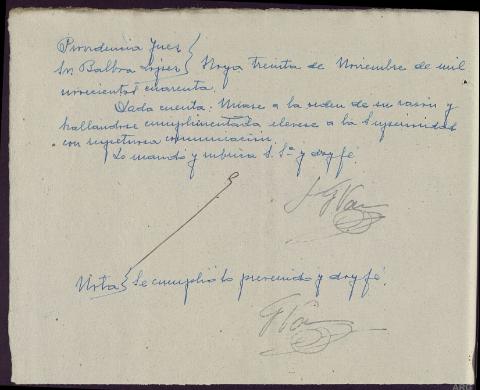 Providencia Juez
Sr. Balboa López } Noya treinta de Noviembre de mil
novecientos cuarenta.
Dada cuenta. Unase a la orden de su razón y
hallandose cumplimentada elevese a la Superioridad
con respetuosa comunicación.
Lo mando y rubrica S. Sª y doy fé.
Nota } Se cumplió lo prevenido y doy fé.